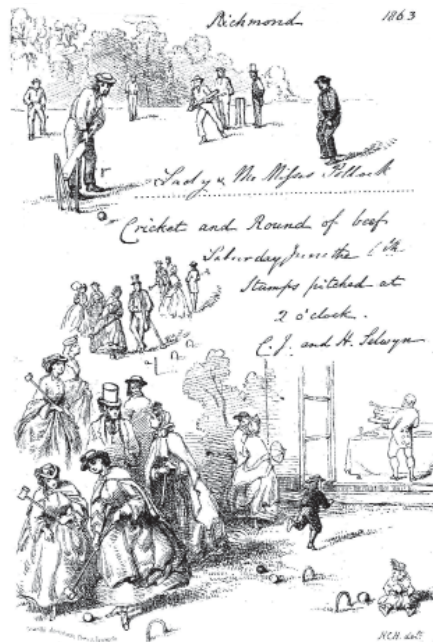 Richmond 1863
Lady & The Misses Pollock
Cricket and Round of beef
Saturday June the 6th
Stumps pitched at
2 o'clock.
C. J. and H. Selwyn
H.C.H. delt.